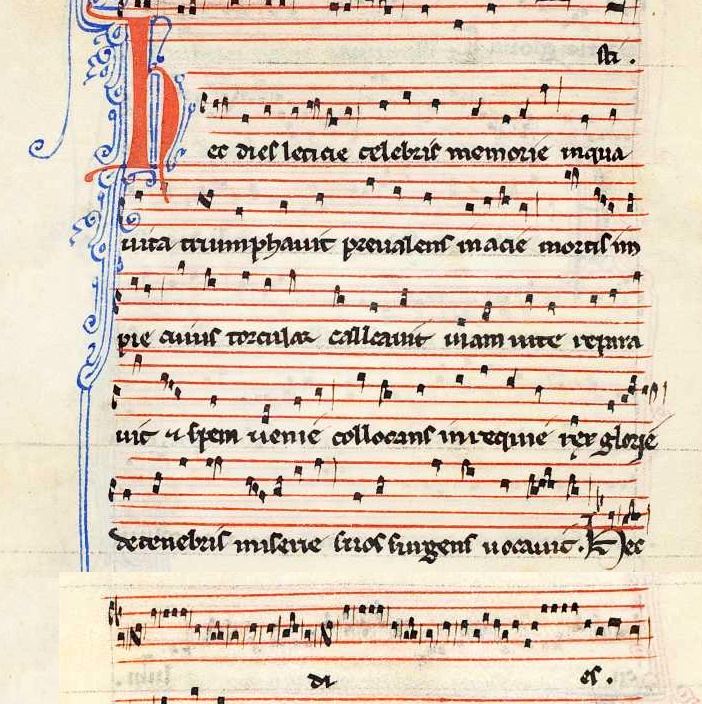 Hec dies leticie celebris memorie in qua
uita triumphauit preualens in acie mortis im
pie cuius torcular calcauit uiam uite repara
uit & spem uenie collocans in requie rex glorie
de tenebris miserie suos surgens uocauit. Hec
di es.